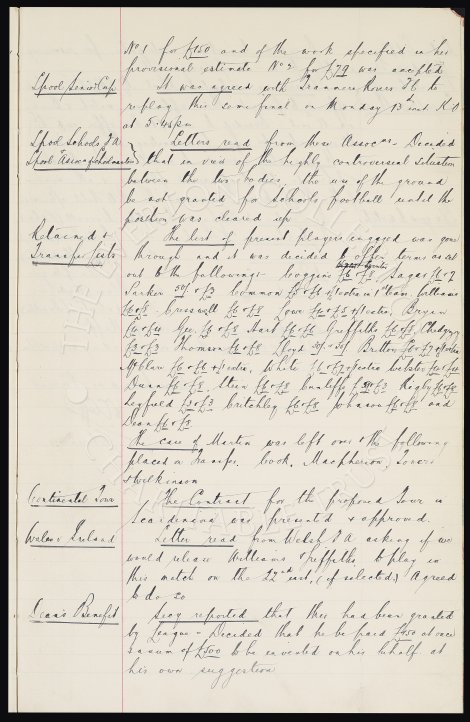 No 1 for £150 and of the work specified in his
provisional estimate No 2 for £79 was accepted
Lpool Senior Cup
It was agreed with Tranmere Rovers Fc to
replay this semi final on Monday 13th inst K.O
at 5.45pm
Lpool Schools F A
Lpool Assoc of Schoolmasters
Letters read from these Assocns - Decided
that in view of the highly controversial situation
between the two bodies, the use of the ground
be not granted for schools football until the
position was cleared up
Retained &
Transfer lists
The list of present players engaged was gone
through and it was decided to offer terms as set
out to the following:- Coggins £6 £8 Sagar
Parker 50/- & £3 Common £6 & £6 extra in 1st team, Gillthorpe
£6 & £8 Cresswell £6 & £8 Lowe Bryan
Gee £6 & £8 Hart £6 & £6 Griffiths £6 & £8 Chedgzoy
£3 & £3 Thomson £6 & £8 Lloyd Britton
McClure £6 & £6 White Webster
Dunn £6 & £8 Stein £6 & £8 Cunliffe Rigby £6 & £8
Leyfield £3 & £3 Critchley £6 & £8 Johnson £6 & £8 and
Dean £6 & £8
The case of Martin was left over & the following
placed on Transfer book, Macpherson, Towers
& Wilkinson
Continental Tour
The Contract for the proposed Tour in
Scandinavia was presented & approved.
Wales v Ireland
Letter read from Welsh F A asking if we
would release Williams & Griffiths to play in
this match on the 22nd inst, (if selected) Agreed
to do so
Dean's Benefit
Secy reported that this had been granted
by League - Decided that he be paid £150 at once
& a sum of £500 to be invested on his behalf at
his own suggestion